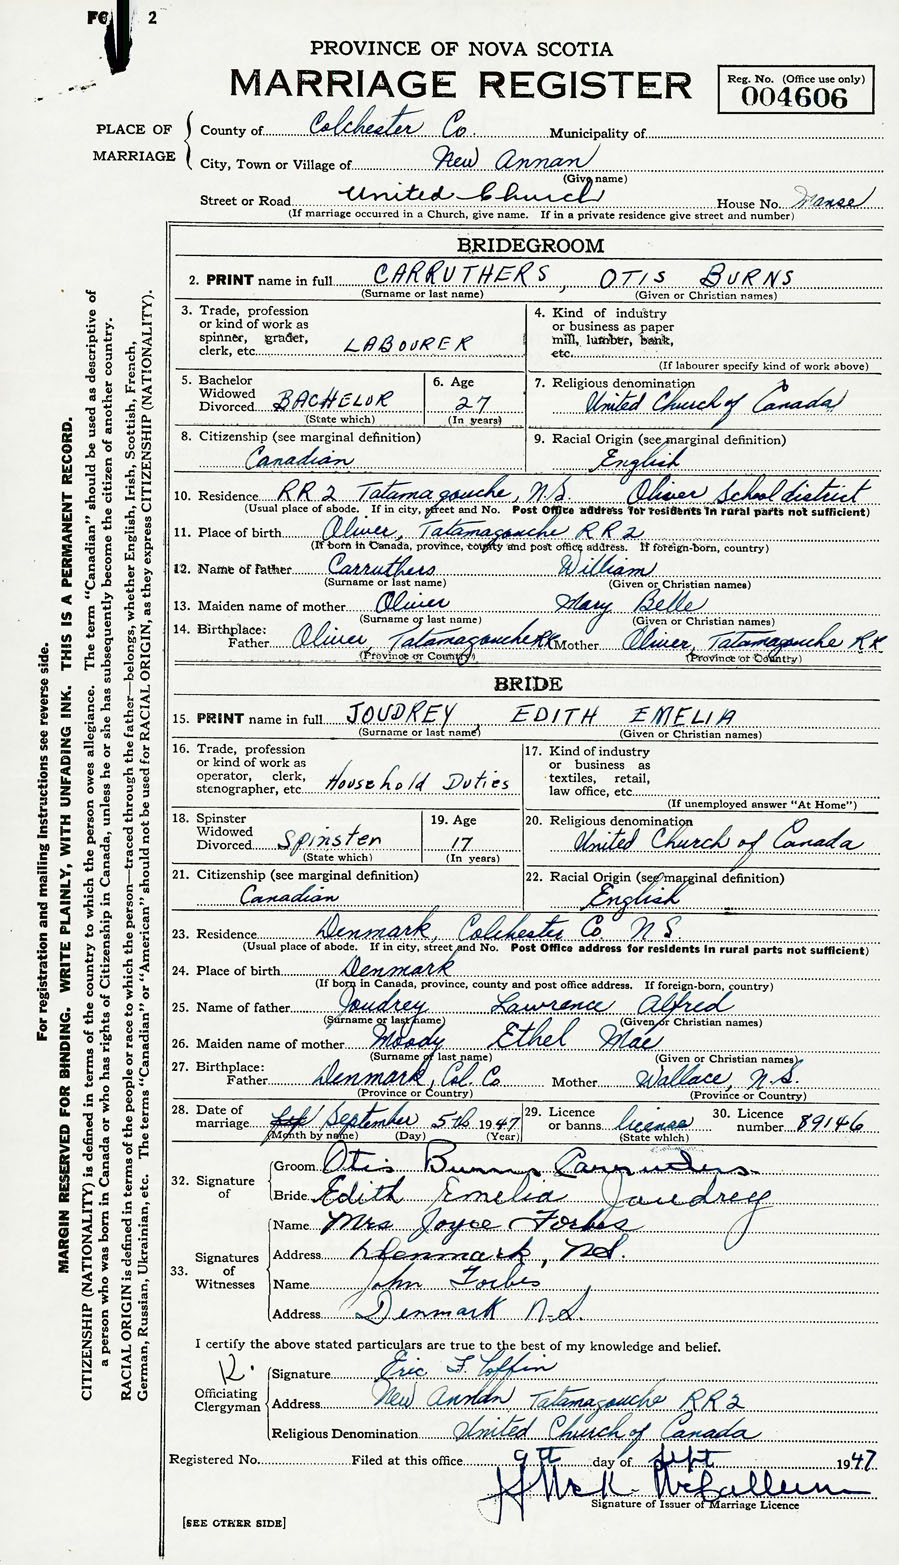 FO 2
PROVINCE OF NOVA SCOTIA
MARRIAGE REGISTER
Reg. No. (Office use only)
004606
PLACE OF MARRIAGE
County of Colchester Co. Municipality of
City, Town or Village of New Annan
(Give name)
Street or Road United Church House No. Manse
(If marriage occurred in a Church, give name. If in a private residence give street and number)
BRIDEGROOM
2. PRINT name in full CARRUTHERS, OTIS BURNS
(Surname or last name) (Given or Christian names)
3. Trade, profession or kind of work as spinner, grader, clerk, etc. LABOURER
4. Kind of industry or business as paper mill, lumber, bank, etc.
(If labourer specify kind of work above)
5. Bachelor Widowed Divorced BACHELOR
(State which)
6. Age 27
(In years)
7. Religious denomination United Church of Canada
8. Citizenship (see marginal definition) Canadian
9. Racial Origin (see marginal definition) English
10. Residence RR 2 Tatamagouche, N.S. Oliver School district
(Usual place of abode. If in city, street and No. Post Office address for residents in rural parts not sufficient)
11. Place of birth Oliver, Tatamagouche RR2
(If born in Canada, province, county and post office address. If foreign-born, country)
12. Name of father Carruthers William
(Surname or last name) (Given or Christian names)
13. Maiden name of mother Oliver Mary Belle
(Surname or last name) (Given or Christian names)
14. Birthplace: Father Oliver, Tatamagouche RR Mother Oliver, Tatamagouche RR
(Province or Country) (Province or Country)
BRIDE
15. PRINT name in full JOUDREY, EDITH EMELIA
(Surname or last name) (Given or Christian names)
16. Trade, profession or kind of work as operator, clerk, stenographer, etc. Household Duties
17. Kind of industry or business as textiles, retail, law office, etc.
(If unemployed answer "At Home")
18. Spinster Widowed Divorced Spinster
(State which)
19. Age 17
(In years)
20. Religious denomination United Church of Canada
21. Citizenship (see marginal definition) Canadian
22. Racial Origin (see marginal definition) English
23. Residence Denmark, Colchester Co. N.S.
(Usual place of abode. If in city, street and No. Post Office address for residents in rural parts not sufficient)
24. Place of birth Denmark
(If born in Canada, province, county and post office address. If foreign-born, country)
25. Name of father Joudrey Lawrence Alfred
(Surname or last name) (Given or Christian names)
26. Maiden name of mother Moody Ethel Mae
(Surname or last name) (Given or Christian names)
27. Birthplace: Father Denmark, Col. Co. Mother Wallace, N.S.
(Province or Country) (Province or Country)
28. Date of marriage September 5th 1947
(Month by name) (Day) (Year)
29. Licence or banns license
(State which)
30. Licence number 89146
32. Signature of
Groom Otis Burns Carruthers
Bride Edith Emelia Joudrey
33. Signatures of Witnesses
Name Mrs Joyce Forbes
Address Denmark, N.S.
Name John Forbes
Address Denmark N.S.
I certify the above stated particulars are true to the best of my knowledge and belief.
Officiating Clergyman
Signature Eric F. Coffin
Address New Annan Tatamagouche RR2
Religious Denomination United Church of Canada
Registered No. Filed at this office 9th day of Sept 1947
Signature of Issuer of Marriage Licence
[SEE OTHER SIDE]
For registration and mailing instructions see reverse side.
MARGIN RESERVED FOR BINDING. WRITE PLAINLY, WITH UNFADING INK. THIS IS A PERMANENT RECORD.
CITIZENSHIP (NATIONALITY) is defined in terms of the country to which the person owes allegiance. The term "Canadian" should be used as descriptive of
a person who was born in Canada or who has rights of Citizenship in Canada, unless he or she has subsequently become the citizen of another country.
RACIAL ORIGIN is defined in terms of the people or race to which the person—traced through the father—belongs, whether English, Irish, Scottish, French,
German, Russian, Ukrainian, etc. The terms "Canadian" or "American" should not be used for RACIAL ORIGIN, as they express CITIZENSHIP (NATIONALITY).